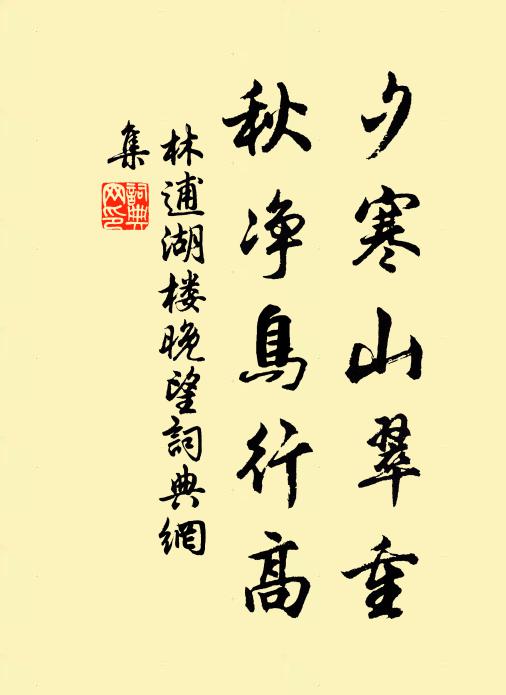 夕寒山翠重
秋净鳥行高
林逋湖楼晚望詞典網
集
詞典
网印